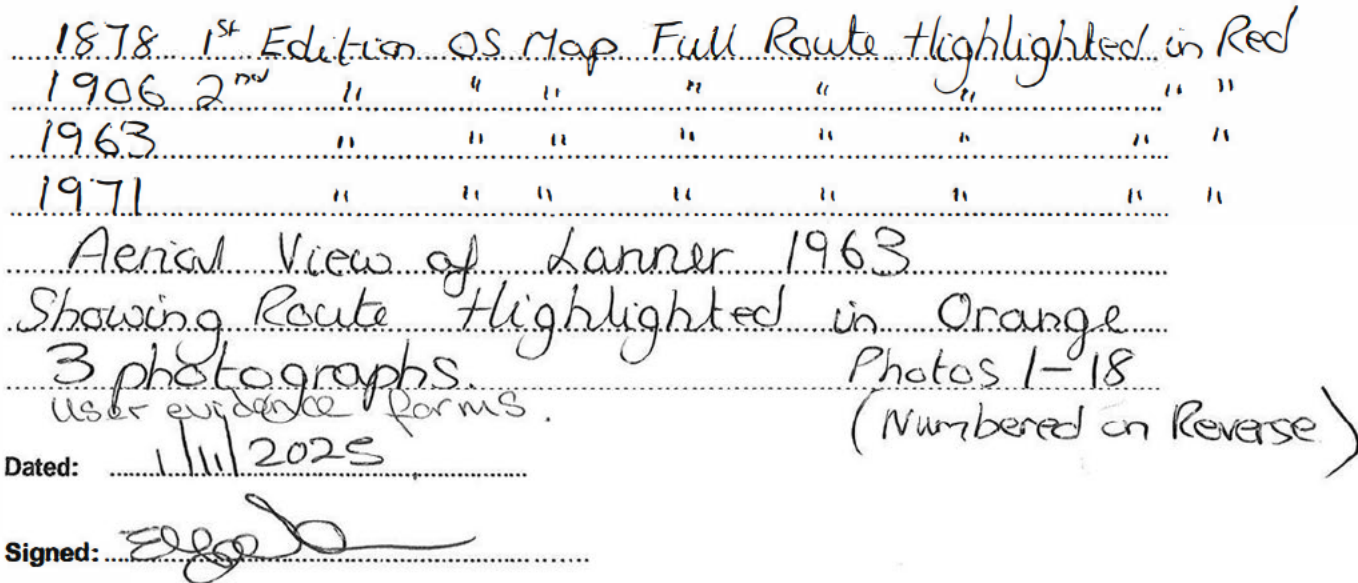 1878 1st Edition OS Map Full Route Highlighted in Red
1906 2nd " " " " " " " "
1963 " " " " " " " "
1971 " " " " " " " "
Aerial View of Lanner 1963
Showing Route Highlighted in Orange
3 photographs. Photos 1-18
User evidence forms. (Numbered on Reverse)
Dated: 1/11/2025
Signed: